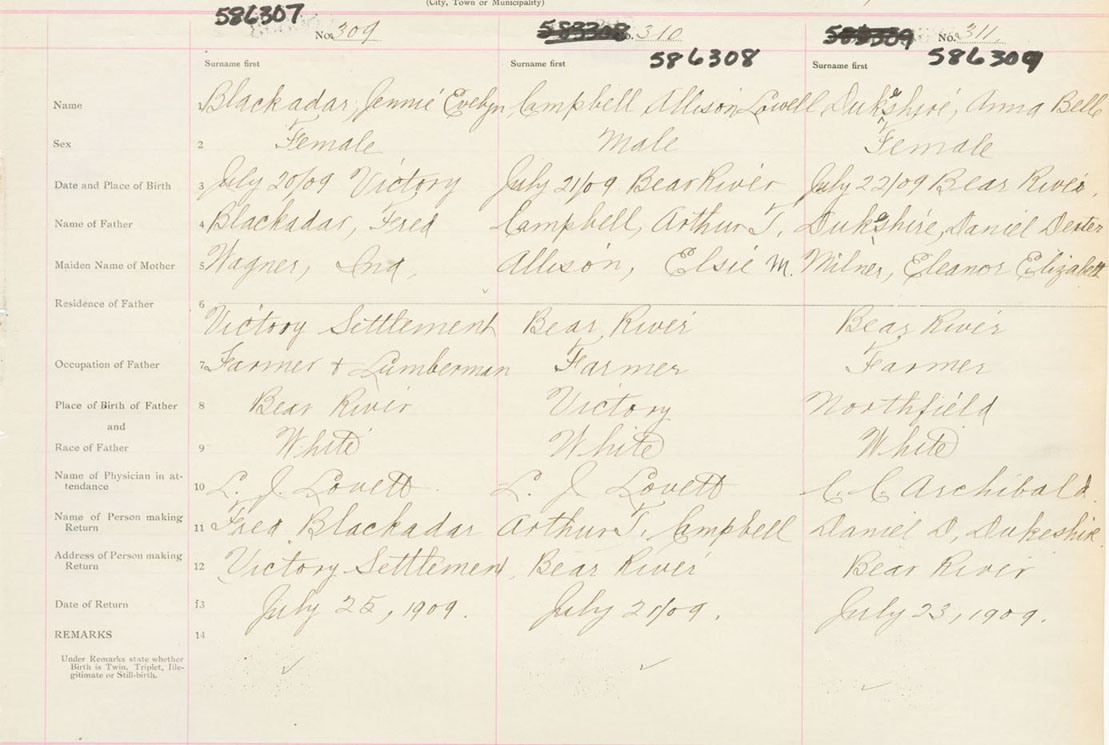 (City, Town or Municipality)
586307 586308 586309
No. 309 No. 310 No. 311
Surname first Surname first Surname first
Name 1 Blackadar, Jennie Evelyn Campbell Allison Lowell Dukeshire, Anna Belle
Sex 2 Female Male Female
Date and Place of Birth 3 July 20/09 Victory July 21/09 Bear River July 22/09 Bear River
Name of Father 4 Blackadar, Fred Campbell, Arthur T. Dukeshire, Daniel Dexter
Maiden Name of Mother 5 Wagner, Ina, Allison, Elsie M. Milner, Eleanor Elizabeth
Residence of Father 6
Victory Settlement Bear River Bear River
Occupation of Father 7 Farmer & Lumberman Farmer Farmer
Place of Birth of Father 8 Bear River Victory Northfield
and
Race of Father 9 White White White
Name of Physician in at-
tendance 10 L. J. Lovett L. J Lovett C C Archibald
Name of Person making
Return 11 Fred Blackadar Arthur T. Campbell Daniel D. Dukeshire
Address of Person making
Return 12 Victory Settlement Bear River Bear River
Date of Return 13 July 25, 1909. July 21/09. July 23, 1909.
REMARKS 14
Under Remarks state whether
Birth is Twin, Triplet, Ille-
gitimate or Still-birth.